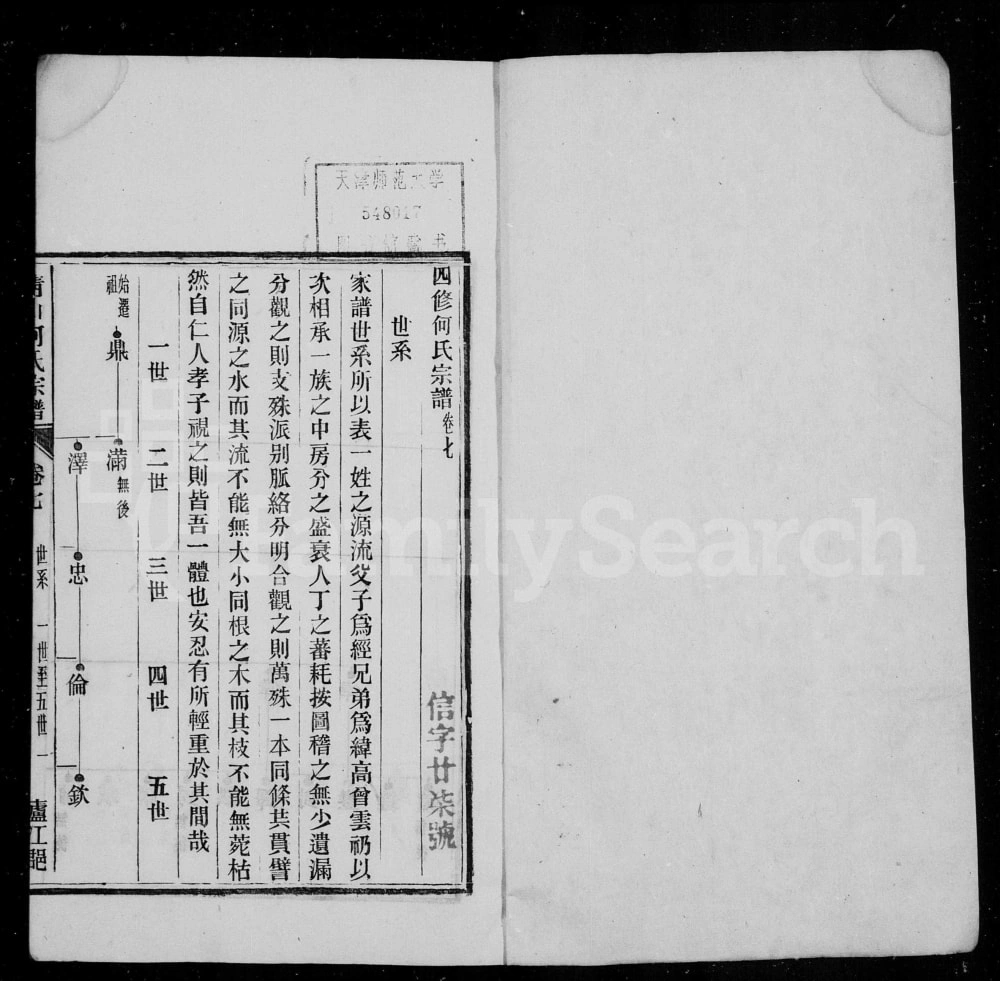 天津师范大学
548017
四修何氏宗譜卷七
信字廿柒號
世系
家譜世系所以表一姓之源流父子爲經兄弟爲緯高曾雲礽以
次相承一族之中房分之盛衰人丁之蕃耗按圖稽之無少遺漏
分觀之則支殊派别脈絡分明合觀之則萬殊一本同條共貫譬
之同源之水而其流不能無大小同根之木而其枝不能無菀枯
然自仁人孝子視之則皆吾一體也安忍有所輕重於其間哉
一世 二世 三世 四世 五世
始遷祖 鼎 滿無後
澤 忠 倫 欽
何氏宗譜 卷七 世系 一世至五世 一 廬江郡
FamilySearch